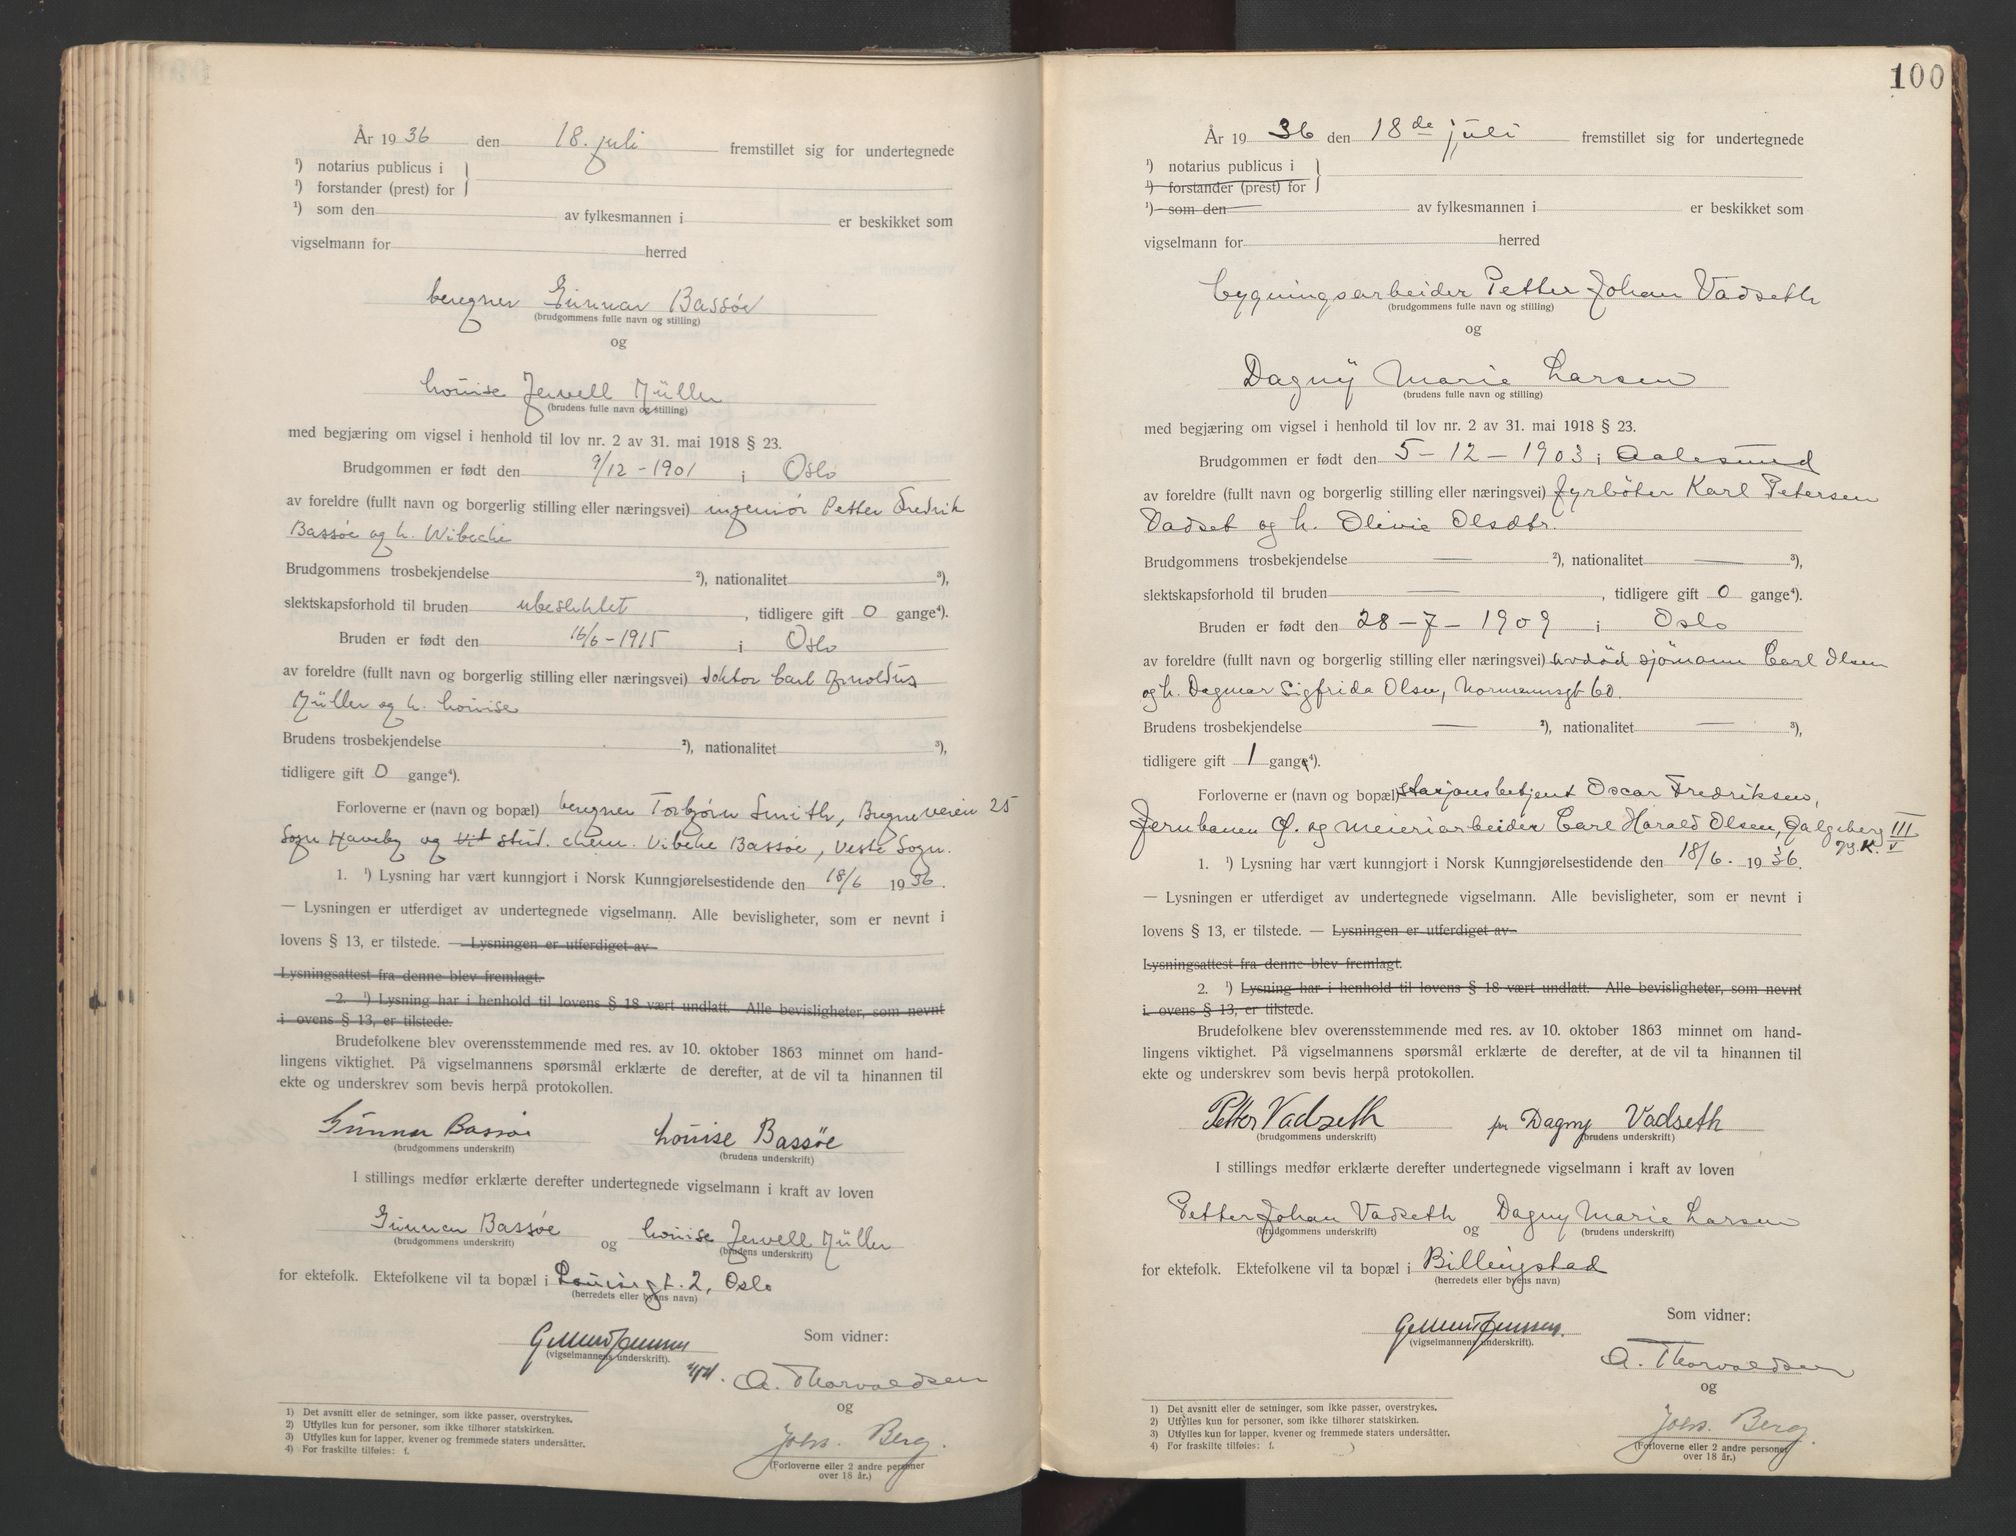 År 1936 den 18. juli fremstillet sig for undertegnede
¹) notarius publicus i
¹) forstander (prest) for
¹) som den av fylkesmannen i er beskikket som
vigselmann for herred
beregner Gunnar Bassøe
(brudgommens fulle navn og stilling)
og
Louise Jervell Müller
(brudens fulle navn og stilling)
med begjæring om vigsel i henhold til lov nr. 2 av 31. mai 1918 § 23.
Brudgommen er født den 9/12 - 1901 i Oslo
av foreldre (fullt navn og borgerlig stilling eller næringsvei) ingeniør Petter Fredrik
Bassøe og h. Wibeche
Brudgommens trosbekjendelse ²), nationalitet ³),
slektskapsforhold til bruden ubeslektet, tidligere gift 0 gange⁴).
Bruden er født den 16/6 - 1915 i Oslo
av foreldre (fullt navn og borgerlig stilling eller næringsvei) doktor Carl Arnoldus
Müller og h. Louise
Brudens trosbekjendelse ²), nationalitet ³),
tidligere gift 0 gange⁴).
Forloverne er (navn og bopæl) beregner Torbjørn Smith, Bygneveien 25
Sogn Haveby og stud. chem. Vibeke Bassøe, Vestre Sogn.
1. ¹) Lysning har vært kunngjort i Norsk Kunngjørelsestidende den 18/6 1936.
— Lysningen er utferdiget av undertegnede vigselmann. Alle bevisligheter, som er nevnt i
lovens § 13, er tilstede. — Lysningen er utferdiget av
Lysningsattest fra denne blev fremlagt.
2. ¹) Lysning har i henhold til lovens § 18 vært undlatt. Alle bevisligheter, som nevnt
i ovens § 13, er tilstede.
Brudefolkene blev overensstemmende med res. av 10. oktober 1863 minnet om hand-
lingens viktighet. På vigselmannens spørsmål erklærte de derefter, at de vil ta hinannen til
ekte og underskrev som bevis herpå protokollen.
Gunnar Bassøe Louise Bassøe
(brudgommens underskrift) (brudens underskrift)
I stillings medfør erklærte derefter undertegnede vigselmann i kraft av loven
Gunnar Bassøe og Louise Jervell Müller
(brudgommens underskrift) (brudens underskrift)
for ektefolk. Ektefolkene vil ta bopæl i Louisesgt. 2, Oslo
(herredets eller byens navn)
Som vidner:
(vigselmannens underskrift).
A. Thorvaldsen
og
Johs. Berg.
(Forloverne eller 2 andre personer
over 18 år.)
1) Det avsnitt eller de setninger, som ikke passer, overstrykes.
2) Utfylles kun for personer, som ikke tilhører statskirken.
3) Utfylles kun for lapper, kvener og fremmede staters undersåtter.
4) For fraskilte tilføies: f.
100
År 1936 den 18de juli fremstillet sig for undertegnede
¹) notarius publicus i
¹) forstander (prest) for
¹) som den av fylkesmannen i er beskikket som
vigselmann for herred
bygningsarbeider Petter Johan Vadseth
(brudgommens fulle navn og stilling)
og
Dagny Marie Larsen
(brudens fulle navn og stilling)
med begjæring om vigsel i henhold til lov nr. 2 av 31. mai 1918 § 23.
Brudgommen er født den 5 - 12 - 1903 i Aalesund
av foreldre (fullt navn og borgerlig stilling eller næringsvei) fyrbøter Karl Petersen
Vadset og h. Olivie Olsdtr.
Brudgommens trosbekjendelse — ²), nationalitet — ³),
slektskapsforhold til bruden —, tidligere gift 0 gange⁴).
Bruden er født den 28 - 7 - 1909 i Oslo
av foreldre (fullt navn og borgerlig stilling eller næringsvei) avdød sjömann Carl Olsen
og h. Dagmar Sigfrida Olsen, Normannsgt 60.
Brudens trosbekjendelse — ²), nationalitet — ³),
tidligere gift 1 gange⁴).
Forloverne er (navn og bopæl) stasjonsbetjent Oscar Fredriksen,
Jernbanen Ø. og meieriarbeider Carl Harald Olsen, Galgeberg III
1. ¹) Lysning har vært kunngjort i Norsk Kunngjørelsestidende den 18/6. 1936.
— Lysningen er utferdiget av undertegnede vigselmann. Alle bevisligheter, som er nevnt i
lovens § 13, er tilstede. — Lysningen er utferdiget av
Lysningsattest fra denne blev fremlagt.
2. ¹) Lysning har i henhold til lovens § 18 vært undlatt. Alle bevisligheter, som nevnt
i ovens § 13, er tilstede.
Brudefolkene blev overensstemmende med res. av 10. oktober 1863 minnet om hand-
lingens viktighet. På vigselmannens spørsmål erklærte de derefter, at de vil ta hinannen til
ekte og underskrev som bevis herpå protokollen.
Petter Vadseth Dagny Vadseth
(brudgommens underskrift) (brudens underskrift)
I stillings medfør erklærte derefter undertegnede vigselmann i kraft av loven
Petter Johan Vadseth og Dagny Marie Larsen
(brudgommens underskrift) (brudens underskrift)
for ektefolk. Ektefolkene vil ta bopæl i Billingstad
(herredets eller byens navn)
Som vidner:
(vigselmannens underskrift).
A. Thorvaldsen
og
Johs. Berg.
(Forloverne eller 2 andre personer
over 18 år.)
1) Det avsnitt eller de setninger, som ikke passer, overstrykes.
2) Utfylles kun for personer, som ikke tilhører statskirken.
3) Utfylles kun for lapper, kvener og fremmede staters undersåtter.
4) For fraskilte tilføies: f.